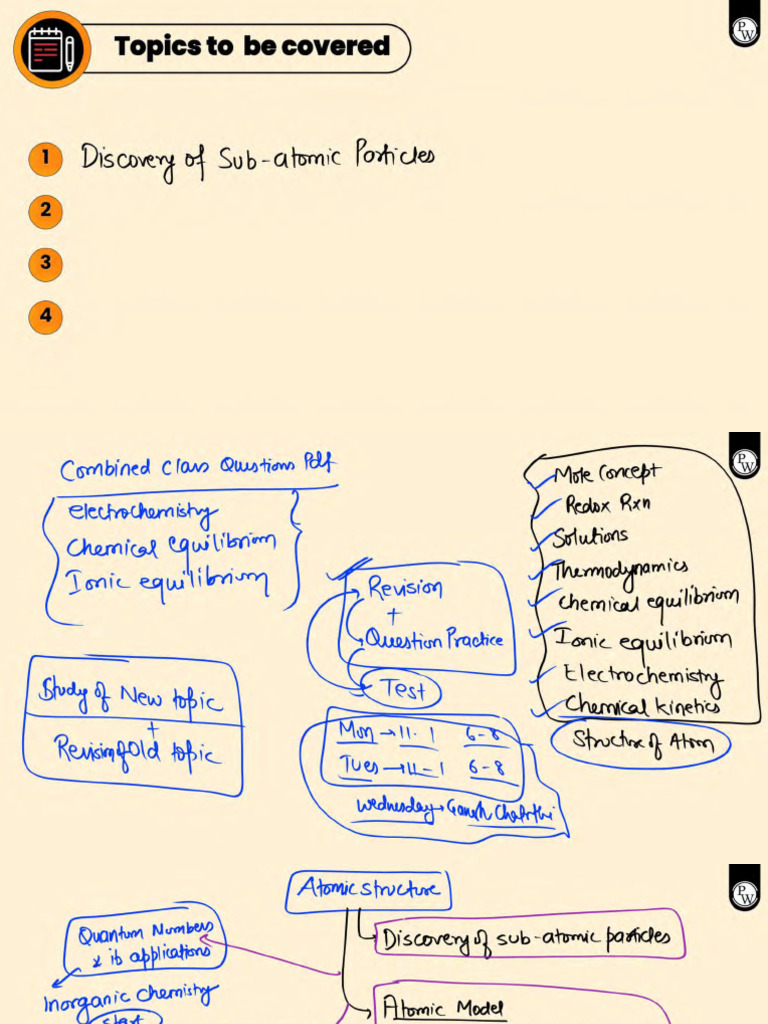 Topics to be covered
PW
1 Discovery of Sub-atomic Particles
2
3
4
PW
Combined Class Questions Pdf
Electrochemistry
Chemical equilibrium
Ionic equilibrium
Mole Concept
Redox Rxn
Solutions
Thermodynamics
Chemical equilibrium
Ionic equilibrium
Electrochemistry
Chemical kinetics
Structure of Atom
Revision
+
Question Practice
Test
Study of New topic
+
Revision of Old topic
Mon → 11-1 6-8
Tues → 11-1 6-8
Wednesday → Ganesh Chaturthi
PW
Atomic structure
Discovery of sub-atomic particles
Atomic Model
Quantum Numbers
& its applications
Inorganic Chemistry
start